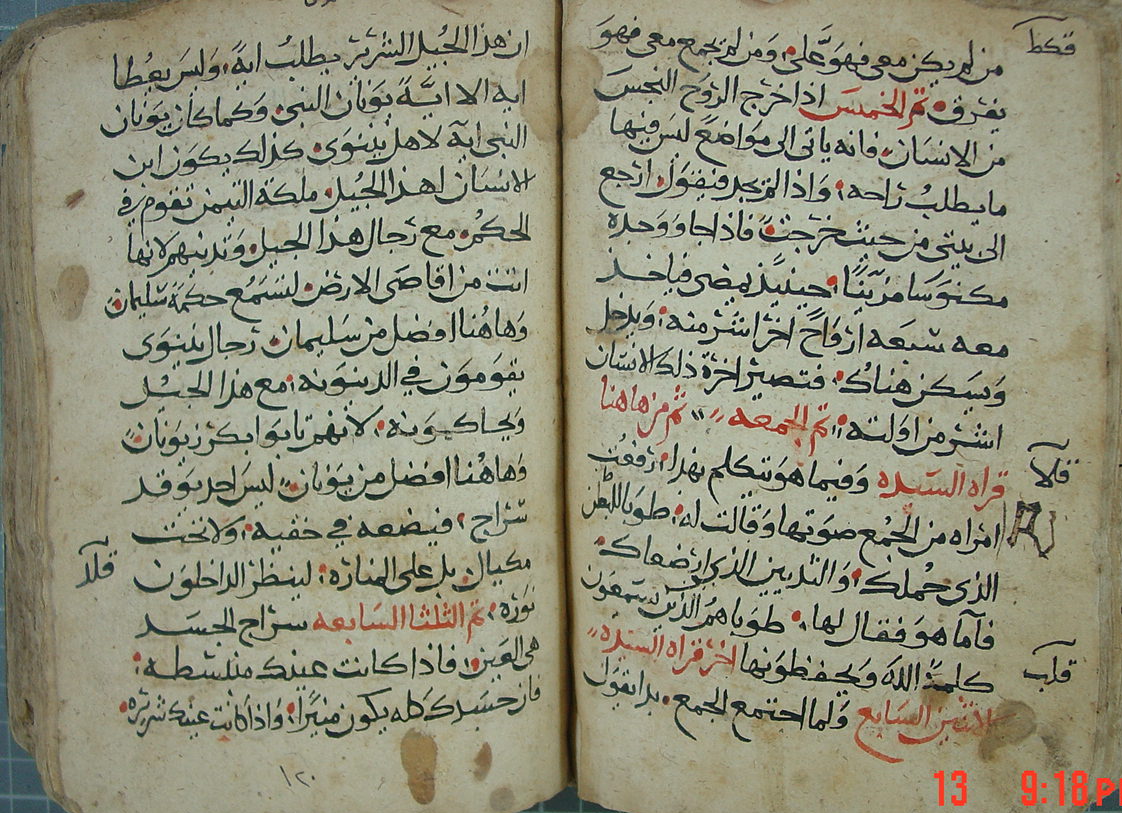 قكط
من لم يكن معي فهو علي، ومن لم يجمع معي فهو
يفرق، تم الخميس اذا خرج الروح النجس
من الانسان، فانه ياتي الى مواضع ليس فيها
ما يطلب راحه، واذا لم يجد فيقول، ارجع
الى بيتي من حيث خرجت، فاذا جا ووجده
مكنوسا مزينا، حينيذ يمضي فياخذ
معه سبعه ارواح اخر اشر منه، ويدخل
ويسكن هناك، فتصير اخرة ذلك الانسان
اشر من اولته، تم الجمعه، ثم من هاهنا
قراه السيده وفيما هو يتكلم بهذا، رفعت
قلا
امراه من الجمع صوتها وقالت له، طوبا للبطن
الذي حملك، والثديين الذي ارضعاك،
فاما هو فقال لها، طوبا هم الذين يسمعون
كلمة الله ويحفظونها اخر قراه السيده
قلب
الاثنين السابع ولما اجتمع الجمع، بدا يقول
ان هذا الجيل الشرير يطلب ايه، وليس يعطا
ايه الا اية يونان النبي، وكما كان يونان
النبي اية لاهل نينوى، كذلك يكون ابن
الانسان لهذا الجيل، ملكة التيمن تقوم في
الحكم، مع رجال هذا الجيل، وتدينهم لانها
اتت من اقاصى الارض، لتسمع حكمة سليمان،
وهاهنا افضل من سليمان، رجال نينوى
يقومون في الدينونه، مع هذا الجيل
ويحاكمونه، لانهم تابوا بكرز يونان،
وهاهنا افضل من يونان، ليس احد يوقد
سراج، فيضعه في خفيه، ولا تحت
مكيال، بل على المناره، لينظر الداخلون
قلد
نوره، تم الثلثا السابعه سراج الجسد
هي العين، فاذا كانت عينك منبسطه،
فان جسدك كله يكون منيرا، واذا كانت عينك شريره،
١٢٠
13 9:18